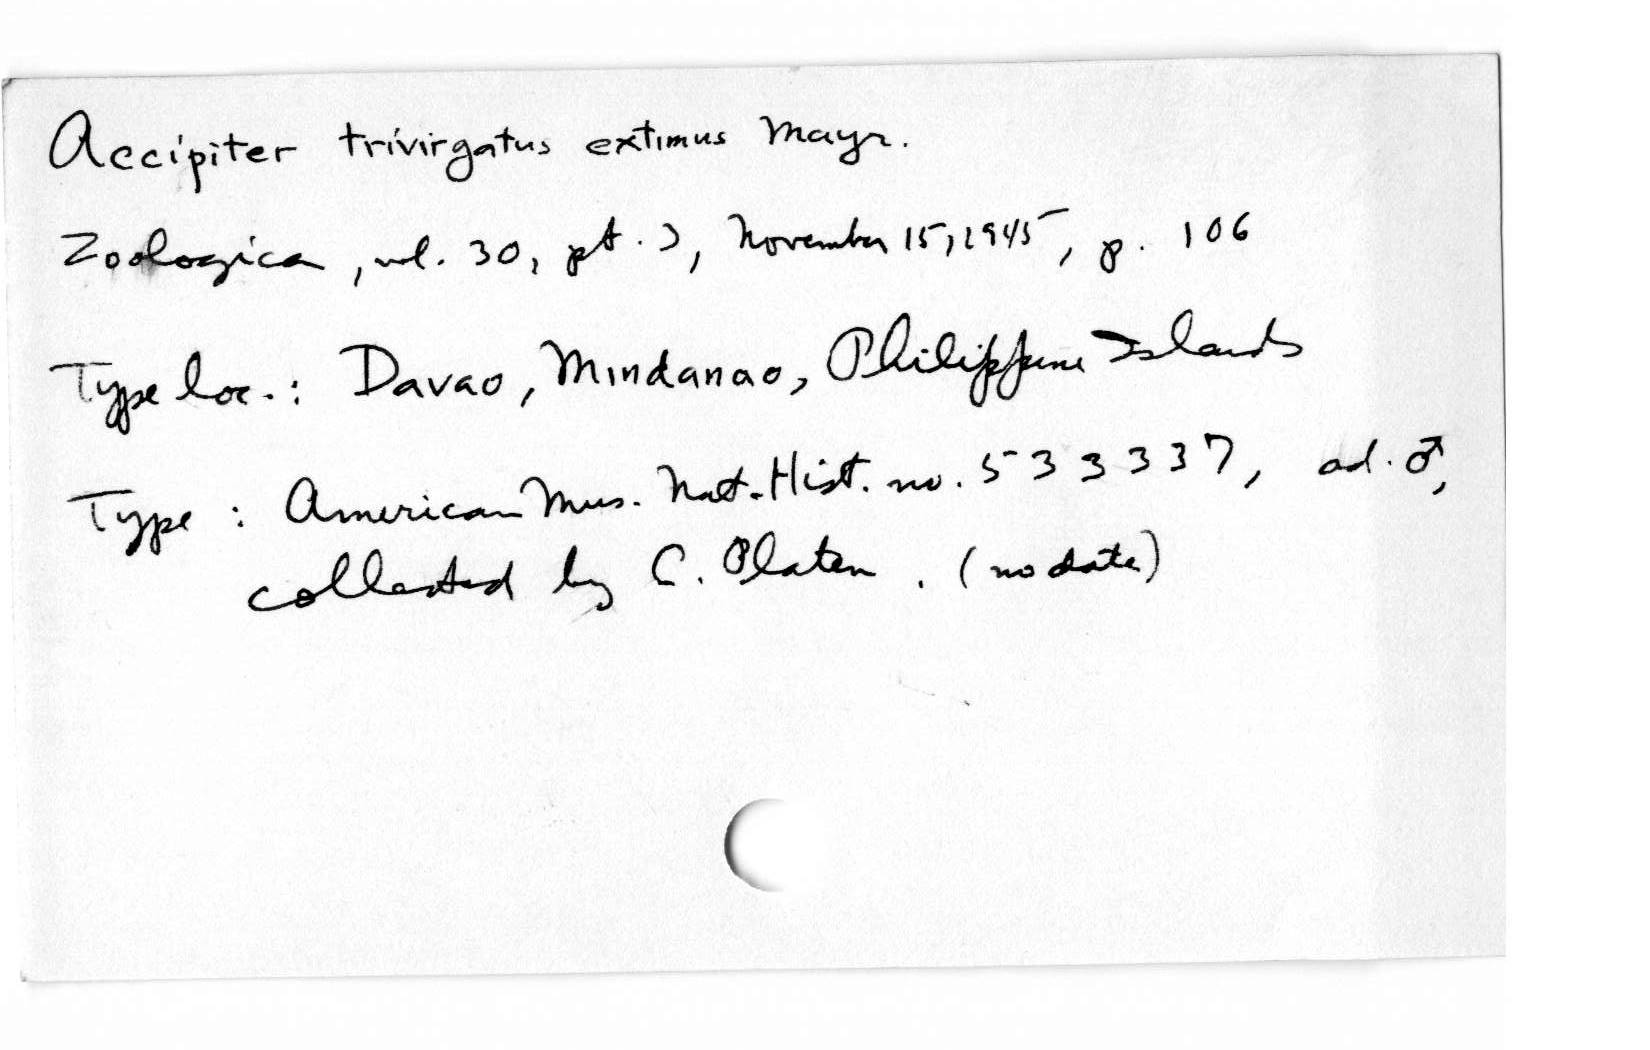 Accipiter trivirgatus extimus Mayr.
Zoologica, vol. 30, pt. 3, November 15, 1945, p. 106
Type loc.: Davao, Mindanao, Philippine Islands
Type : American Mus. Nat. Hist. no. 533337, ad. ♂,
collected by C. Platen. (no date)